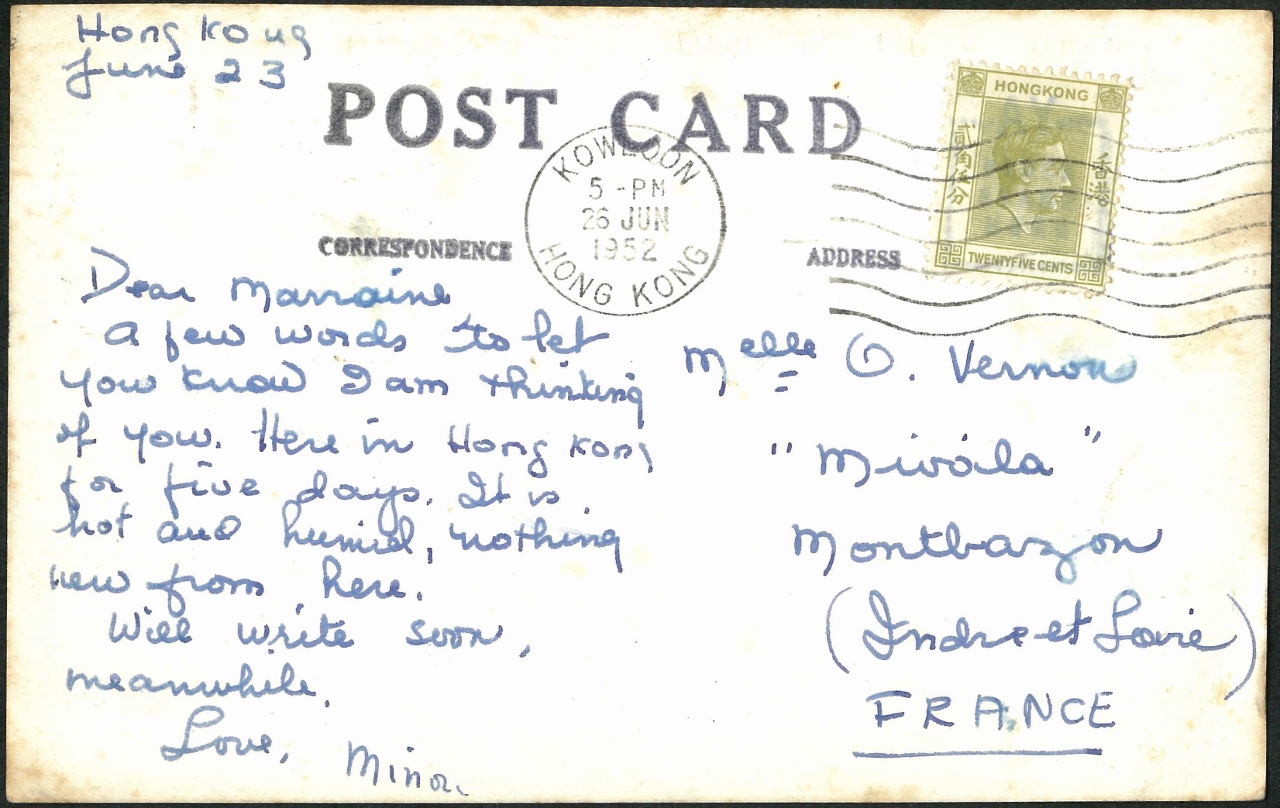 Hong Kong
June 23
POST CARD
HONGKONG
貳角伍分
香港
TWENTYFIVE CENTS
KOWLOON
5 - PM
26 JUN
1952
HONG KONG
CORRESPONDENCE
ADDRESS
Dear Marraine
A few words to let
you know I am thinking
of you. Here in Hong Kong
for five days. It is
hot and humid, nothing
new from here.
Will write soon,
meanwhile.
Love,
Melle O. Vernon
"Mivola"
Montbazon
(Indre et Loire)
FRANCE